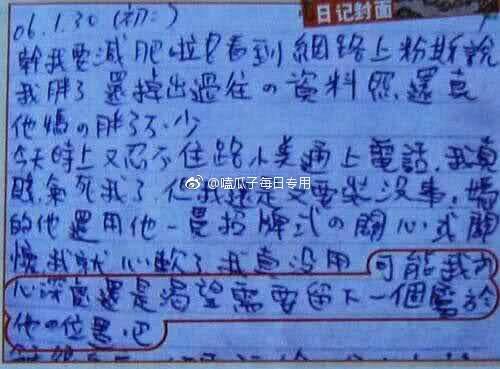 日记封面
06.1.30 (初二)
幹我要減肥啦 看到網路上粉斯說
我胖了還掉出過往の資料照,還真
他媽の胖了不少
今天時上又忍不住路小美通上電話,我真
氣死我了 但我還是又要裝沒事,聽
的他還用他一貫招牌式の關心式關
懷我就心軟了我真沒用 可能我內
心深處還是渴望需要留下一個屬於
他の位置吧
@嗑瓜子每日专用